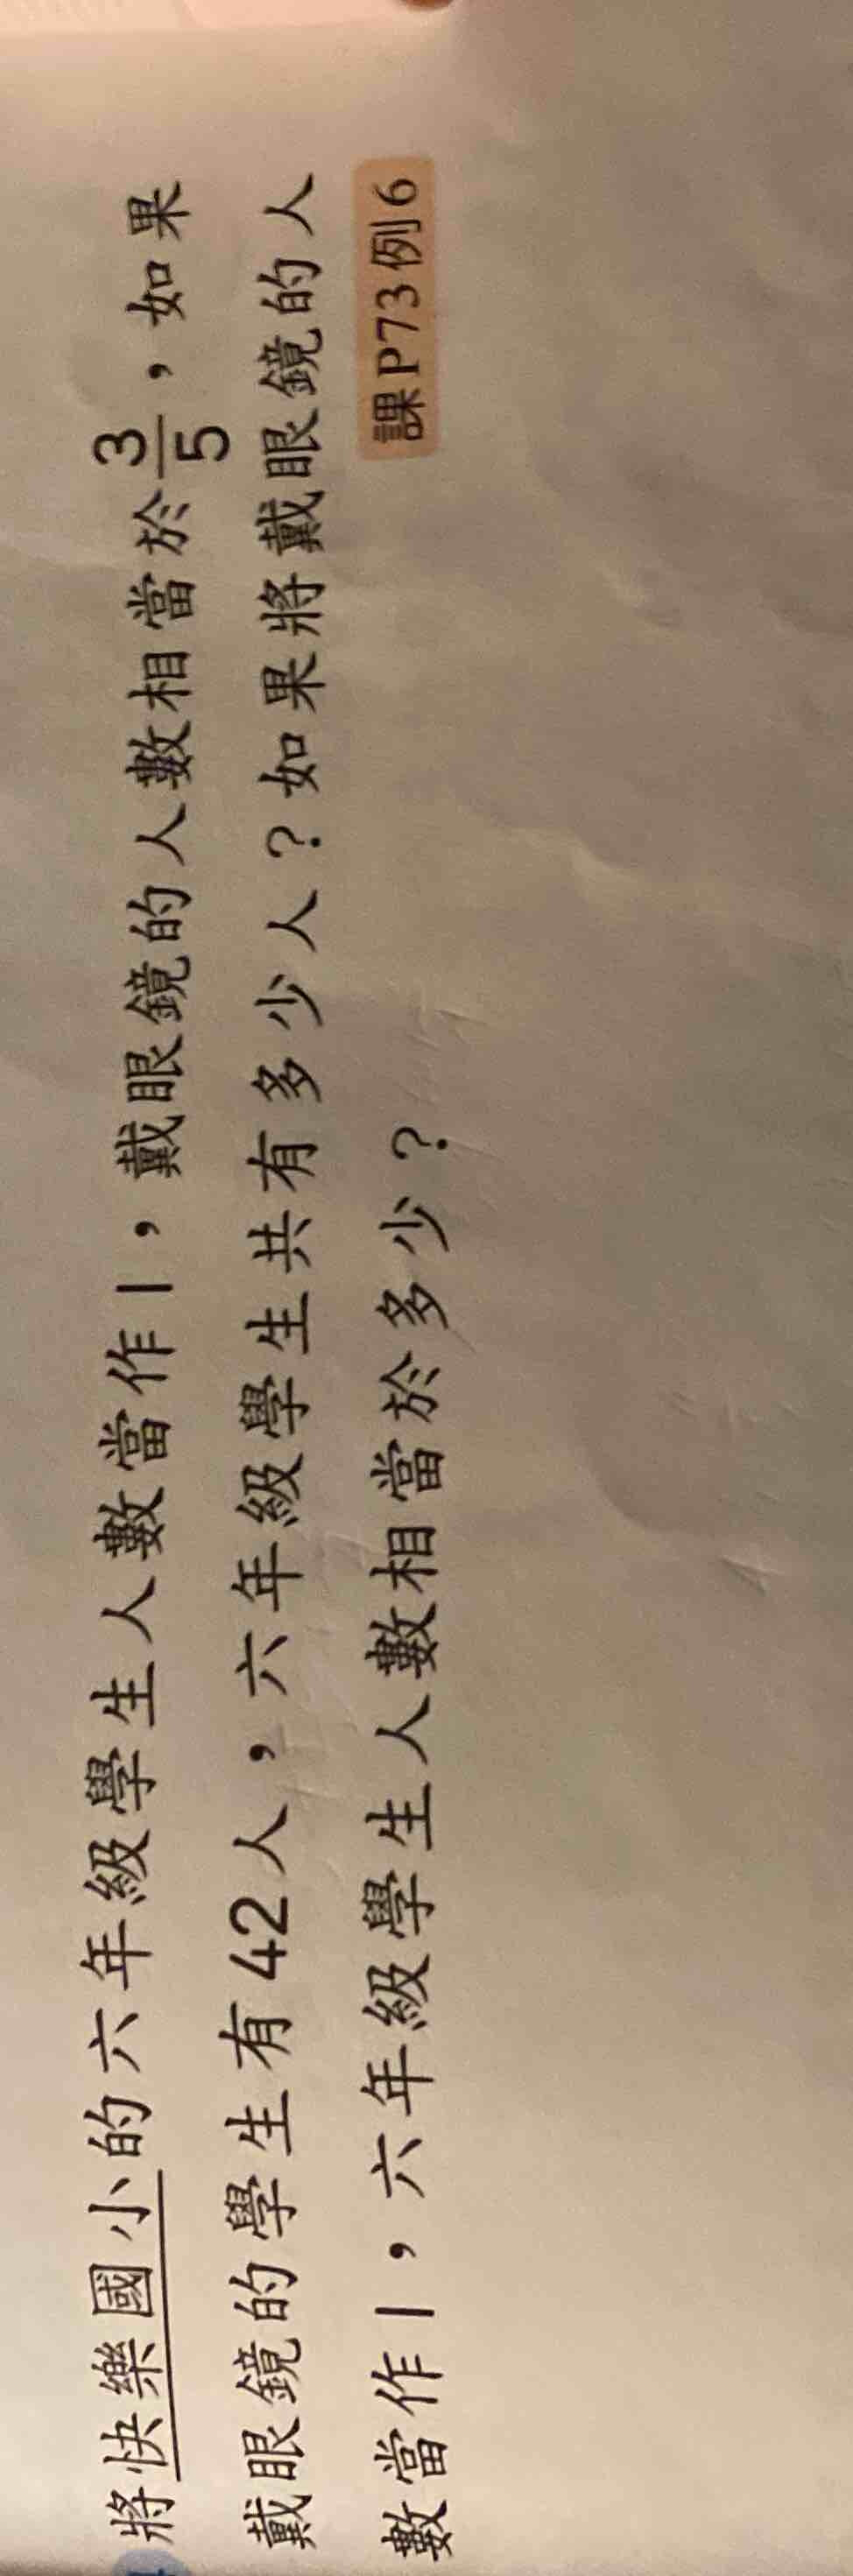 將快樂國小的六年級學生人數當作1，戴眼鏡的人數相當於3/5，如果
戴眼鏡的學生有42人，六年級學生共有多少人？如果將戴眼鏡的人
數當作1，六年級學生人數相當於多少？
課P73例6